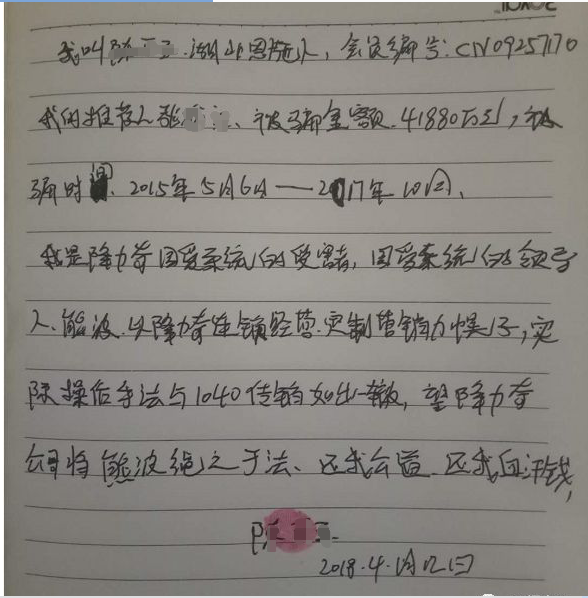 我叫陈 湖北恩施人,会员编号:CN09257170
我的推荐人张 、被骗金额.41880万到,被
骗时间、2015年5月6日——2017年10月、
我是降力奇因爱系统的受害者,因爱系统的领导
人、熊波.以降力奇连锁经营.定制营销为幌子,实
际操作手法与1040传销如出一辙,望降力奇
公司将熊波绳之于法、还我公道.还我血汗钱,
陈
2018.4.月12日